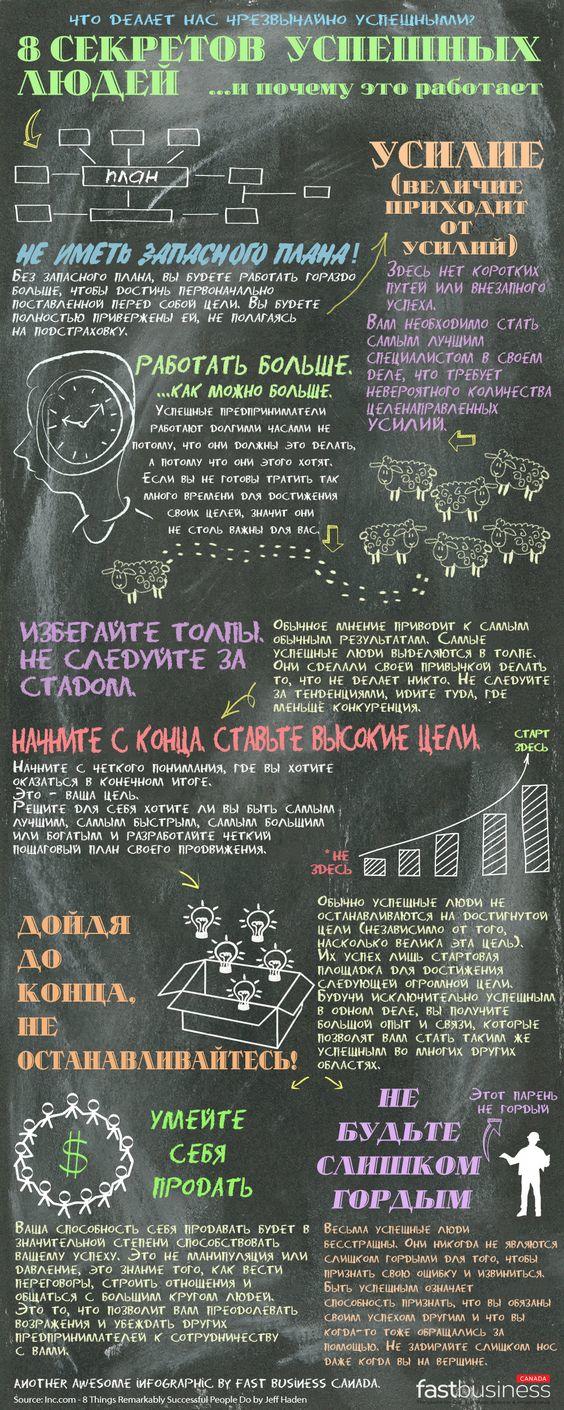 ЧТО ДЕЛАЕТ НАС ЧРЕЗВЫЧАЙНО УСПЕШНЫМИ?
8 СЕКРЕТОВ УСПЕШНЫХ
ЛЮДЕЙ ...и почему это работает
ПЛАН
НЕ ИМЕТЬ ЗАПАСНОГО ПЛАНА!
Без запасного плана, вы будете работать гораздо
больше, чтобы достичь первоначально
поставленной перед собой цели. Вы будете
полностью привержены ей, не полагаясь
на подстраховку.
УСИЛИЕ
(ВЕЛИЧИЕ
ПРИХОДИТ
ОТ
УСИЛИЙ)
Здесь нет коротких
путей или внезапного
успеха.
Вам необходимо стать
самым лучшим
специалистом в своем
деле, что требует
невероятного количества
целенаправленных
усилий.
РАБОТАТЬ БОЛЬШЕ.
...КАК МОЖНО БОЛЬШЕ.
Успешные предприниматели
работают долгими часами не
потому, что они должны это делать,
а потому что они этого хотят.
Если вы не готовы тратить так
много времени для достижения
своих целей, значит они
не столь важны для вас.
ИЗБЕГАЙТЕ ТОЛПЫ.
НЕ СЛЕДУЙТЕ ЗА
СТАДОМ.
Обычное мнение приводит к самым
обычным результатам. Самые
успешные люди выделяются в толпе.
Они сделали своей привычкой делать
то, что не делает никто. Не следуйте
за тенденциями, идите туда, где
меньше конкуренция.
НАЧНИТЕ С КОНЦА. СТАВЬТЕ ВЫСОКИЕ ЦЕЛИ.
Начните с четкого понимания, где вы хотите
оказаться в конечном итоге.
Это - ваша цель.
Решите для себя хотите ли вы быть самым
лучшим, самым быстрым, самым большим
или богатым и разработайте четкий
пошаговый план своего продвижения.
СТАРТ
ЗДЕСЬ
*НЕ
ЗДЕСЬ
ДОЙДЯ
ДО
КОНЦА,
НЕ
ОСТАНАВЛИВАЙТЕСЬ!
Обычно успешные люди не
останавливаются на достигнутой
цели (независимо от того,
насколько велика эта цель).
Их успех лишь стартовая
площадка для достижения
следующей огромной цели.
Будучи исключительно успешным
в одном деле, вы получите
большой опыт и связи, которые
позволят вам стать таким же
успешным во многих других
областях.
$
УМЕЙТЕ
СЕБЯ
ПРОДАТЬ
Ваша способность себя продавать будет в
значительной степени способствовать
вашему успеху. Это не манипуляция или
давление, это знание того, как вести
переговоры, строить отношения и
общаться с большим кругом людей.
Это то, что позволит вам преодолевать
возражения и убеждать других
предпринимателей к сотрудничеству
с вами.
НЕ
БУДЬТЕ
СЛИШКОМ
ГОРДЫМ
Этот парень
не гордый
Весьма успешные люди
бесстрашны. Они никогда не являются
слишком гордыми для того, чтобы
признать свою ошибку и извиниться.
Быть успешным означает
способность признать, что вы обязаны
своим успехом другим и что вы
когда-то тоже обращались за
помощью. Не задирайте слишком нос
даже когда вы на вершине.
ANOTHER AWESOME INFOGRAPHIC BY FAST BUSINESS CANADA.
Source: Inc.com - 8 Things Remarkably Successful People Do by Jeff Haden
CANADA
fastbusiness